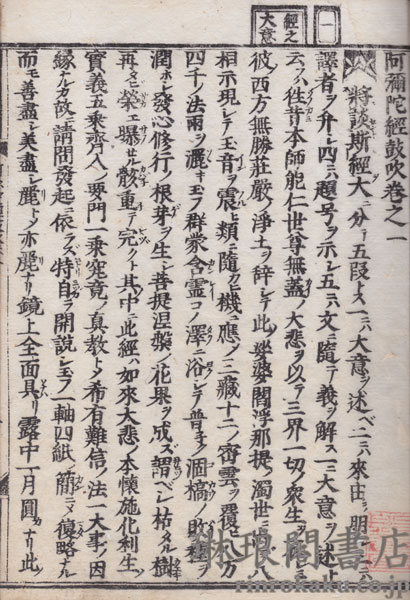 一
經之
大意
阿彌陀經鼓吹卷之一
將談斯經大ニ分テ五段トス一ニハ大意ヲ述ベ二ニハ來由ヲ明シ三ニハ
譯者ヲ弁シ四ニハ題号ヲ示シ五ニハ文ニ隨テ義ヲ解ス一ニ大意ヲ述トハ
云ク往昔本師能仁世尊無蓋ノ大悲ヲ以テ三界一切ノ衆生
彼ノ西方無勝莊嚴ノ淨土ヲ辞シテ此娑婆閻浮那提ノ濁世ニ 八
相示現シテ玉音ヲ震ヒ類ニ隨ガヒ機ニ應ソ三藏十二ノ密雲ヲ覆ヒ八万
四千ノ法雨ヲ灑キ玉フ群蒙含靈コノ澤ニ浴シテ普ク涸槁ノ敗種ヲ
潤ホシ發心修行ノ根芽ヲ生シ菩提涅槃ノ花果ヲ成ズ謂ベシ枯タル樹
再タヒ榮エ曝セル骸重テ完クト其中ニ此經ハ如來大悲ノ本懷施化利生ノ
實義五乘齊入ノ要門一乘究竟ノ眞教トシ希有難信ノ法一大事ノ因
緣ナルカ故ニ請問發起ニ依ラズ特自ラ開說シ玉フ一軸四紙簡ニソ復略ナル
而モ善盡シ美盡シ麗トノ亦麗ナリ鏡上全面具リ露中一月圓カナリ此
琳琅閣書店
rinrokaku.co.jp